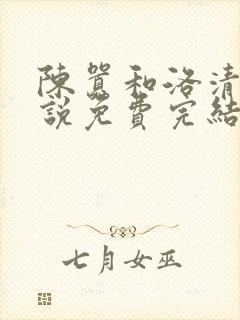 陳囂和洛清
說免費完結
七月女巫